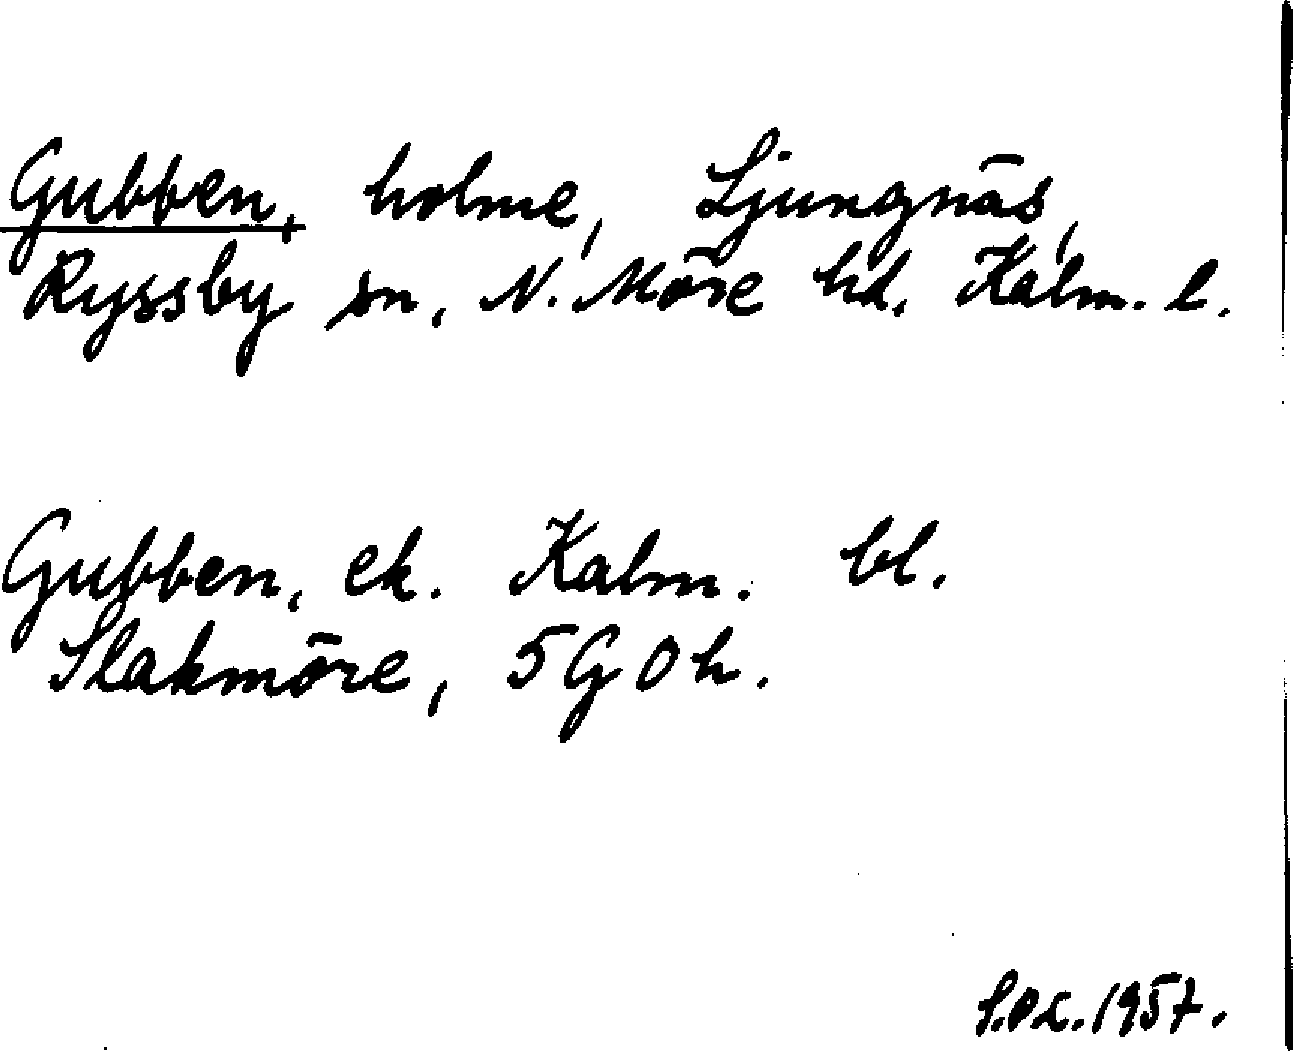 Gubben, holme, Ljungnäs,
Ryssby sn, N. Möre hd, Kalm. l.
Gubben, ek. Kalm. bl.
Slakmöre, 5 G O h.
1957.